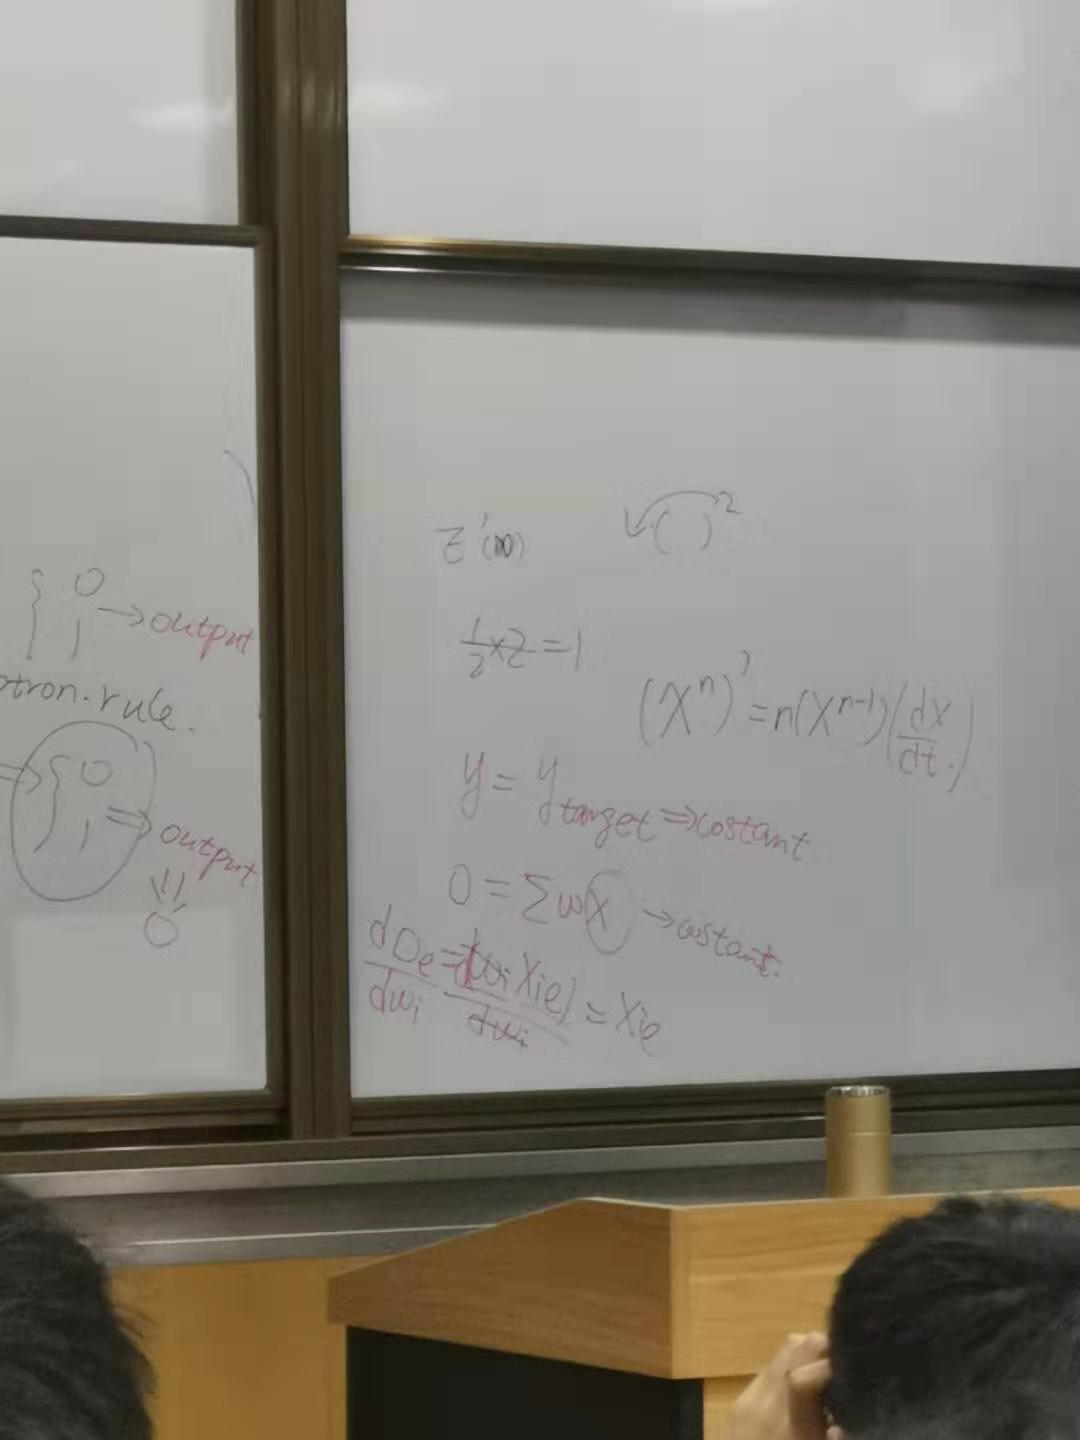 { 0 → output
1
otron.rule.
⇒ { 0
1 ⇒ output
( )²
½×2=1
(Xⁿ)' = n(Xⁿ⁻¹)(dX/dt.)
y = y target ⇒ costant
O = Σ w x → costant.
dOe/dwi = d(wi Xie)/dwi = Xie